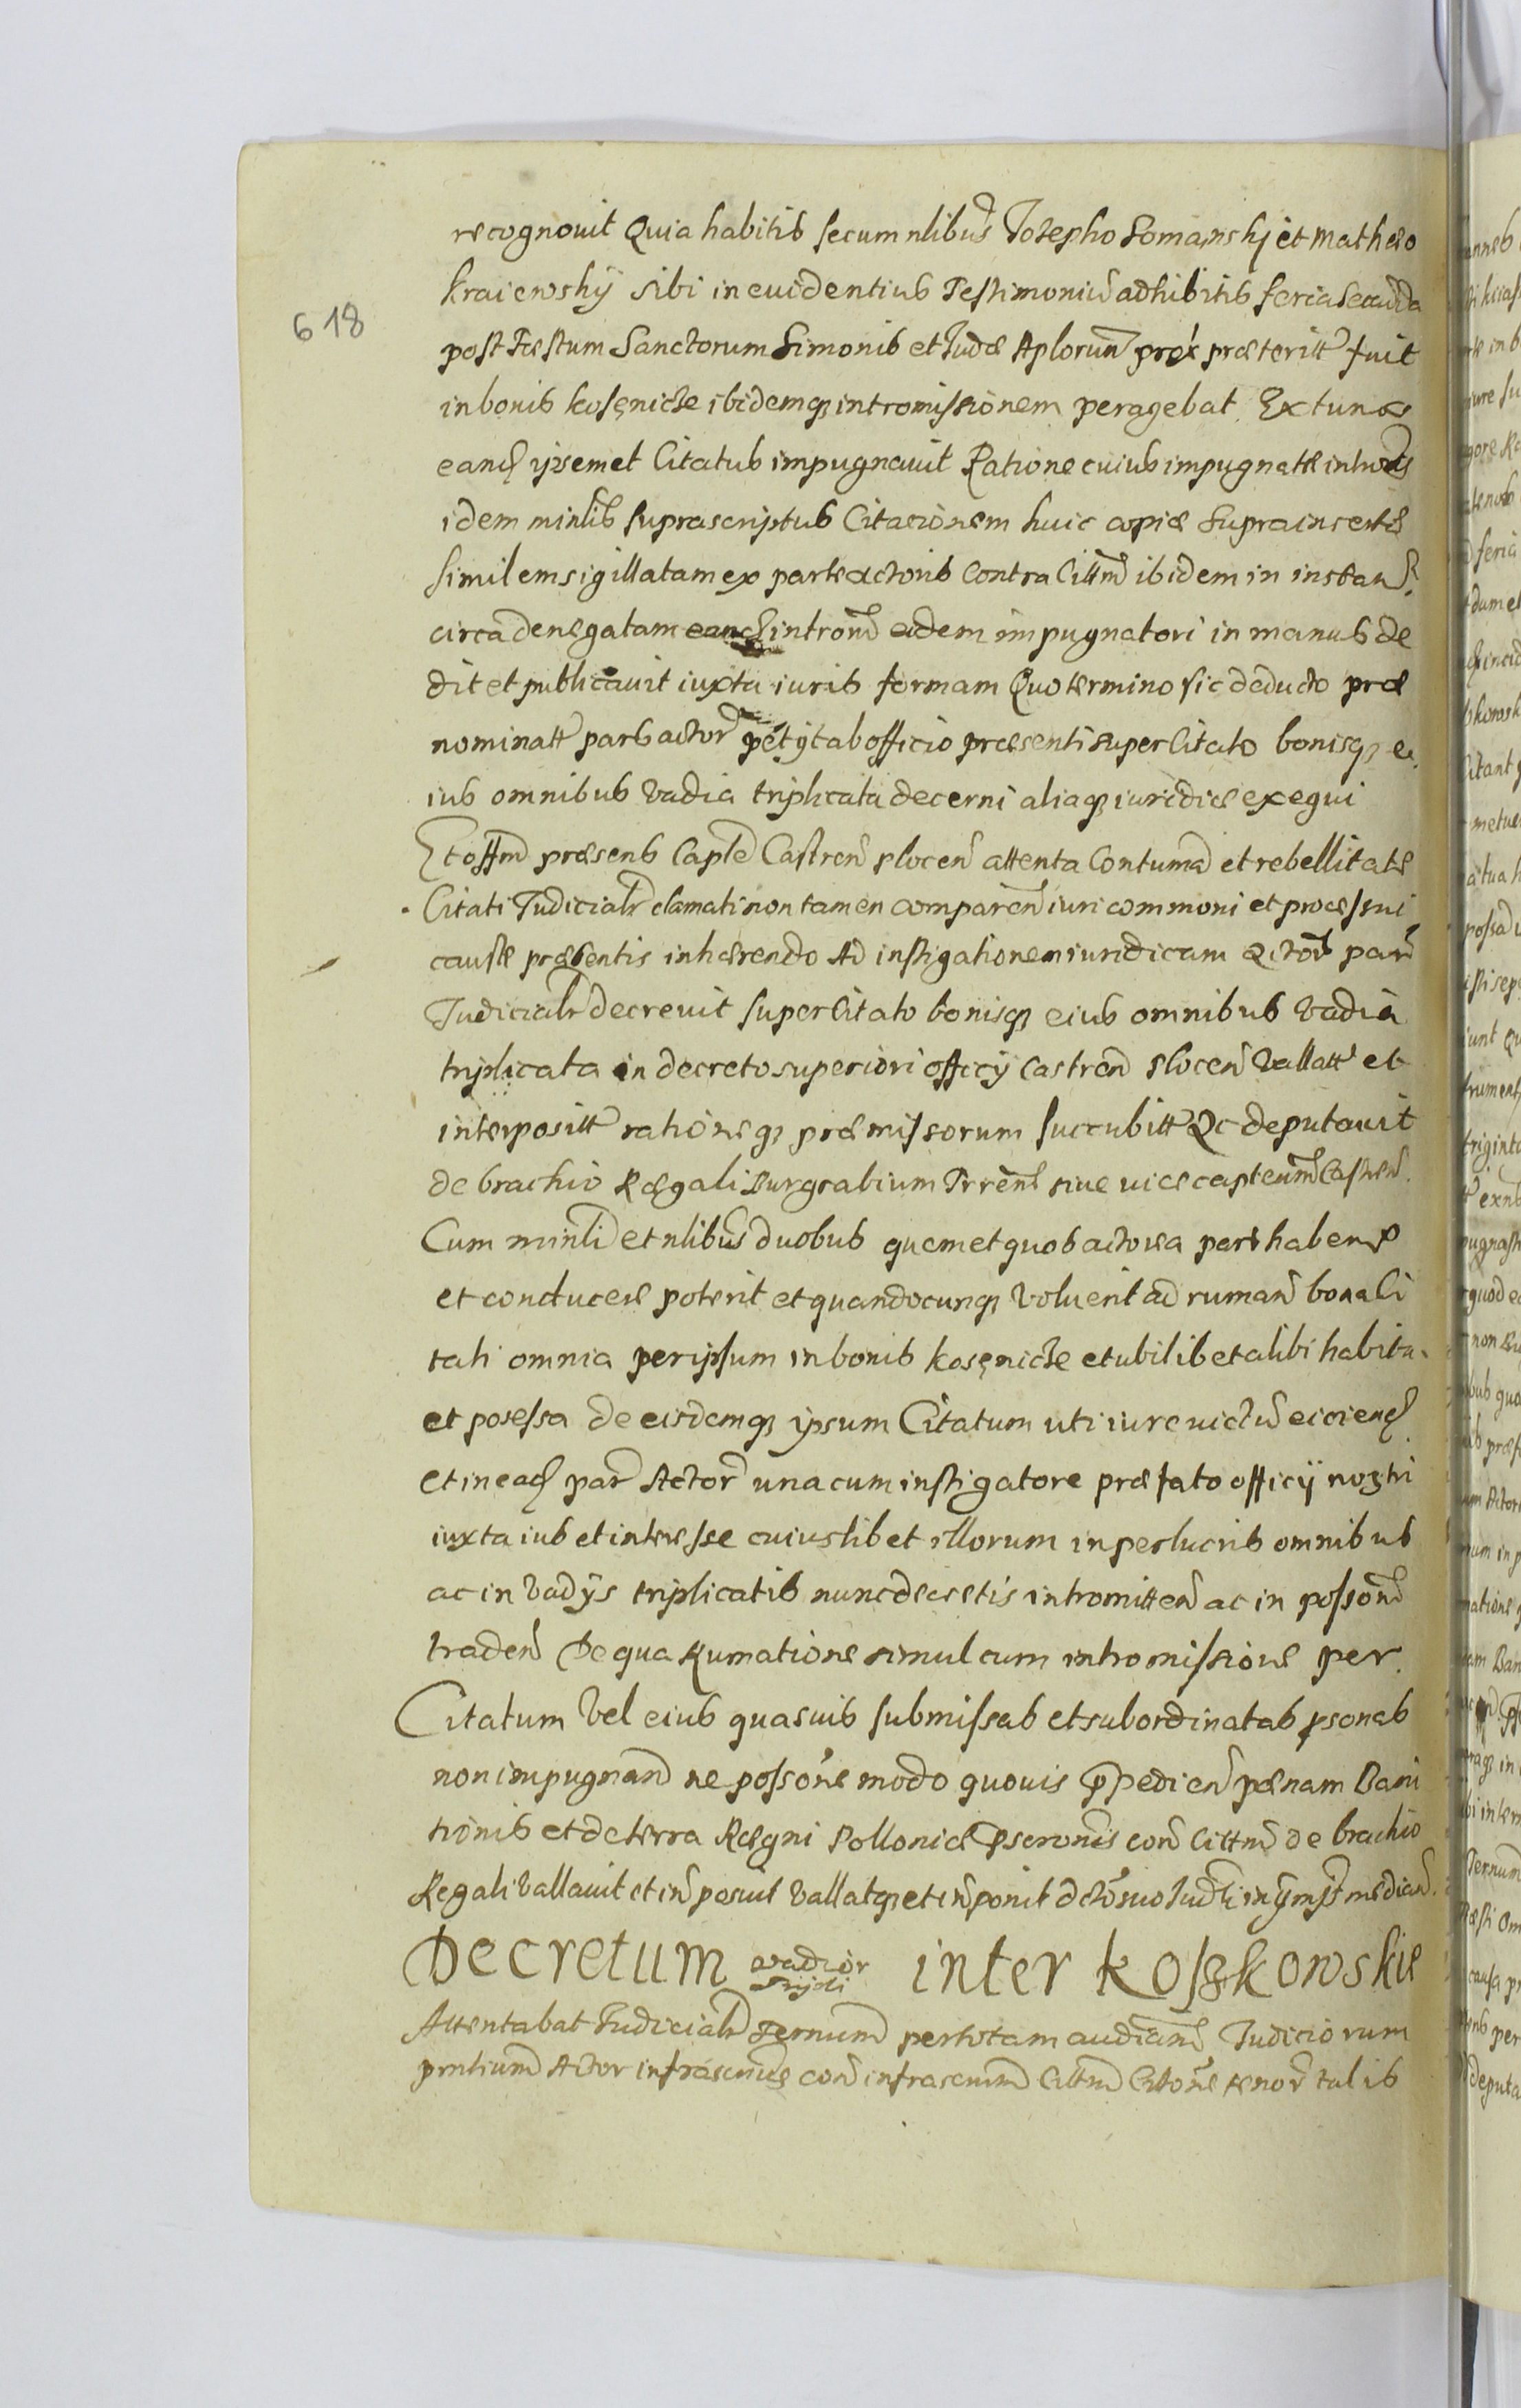 recognouit Quia habitis secum nlibus Josepho Lomainskj et Mathæo
618
kraiewskÿ sibi in euidentius Testimoniū adhibitis feria Secunda
post Fæstum Sanctorum Simonis et Judæ Aplorum prox præteritt fuit
in bonis kosęnicke ibidemq intromissionem peragebat Extunc
eand ipsemet Citatus impugnauit Ratione cuius impugnatæ
idem minlis suprascriptus Citacionem huic copiæ Suprainsertæ
similem sigillatam ex parte actoris Contra Cittm ibidem in instan
circa denegatam introm eidem impugnatori in manus de
dit et publicauit iuxta iuris formam Quo termino sic deducto præ
nominatt pars actor petÿt ab officio præsenti super Citato bonisq e
ius omnibus Vadia triplicata decerni aliaq iuridice exequi
Et offm præsens Caple Castren plocen attenta Contuma et rebellitate
Citati Judicialr clamati non tamen comparen iuri commoni et processui
causæ præsentis inhærendo Ad instigationem iuridicam Actor par
Judicialr decreuit super Citato bonisq eius omnibus Vadia
triplicata in decreto superiori officÿ Castren plocen Vallatt et
interpositt rationeq præmissorum succubitt Ac deputauit
de brachio Regali Burgrabium Trren siue uice capteum Castren
Cum minli et nlibus duobus quem et quos actorea pars habere
et conducere poterit et quandocunq Voluerit ad ruman bona Ci
tati omnia per ipsum in bonis kosęnicke et ubilibet alibi habita
et posessa de eisdemq ipsum Citatum uti iure uictū eiciend
et in ead par Actor una cum instigatore præfato officÿ nostri
iuxta ius et interesse cuiuslibet illorum in perlucris omnibus
ac in Vadÿs triplicatis nunc decretis intromitten ac in posson
traden De qua Rumatione simul cum intromissione per
Citatum Vel eius quasuis submissas et subordinatas psonas
non impugnand ne possone modo quouis Pædien pænam Bani
tionis et de terra Rægni Polloniæ pscronis con Cittm de brachio
Regali Vallauit et in posuit Vallatq et in ponit
Decretum vadior tripli inter Koszkowskie
Attentabat Judicialr Ternum per totam audian Judiciorum
prntium Actor infrascrius con infrascrium Cittm Citone tenor talis